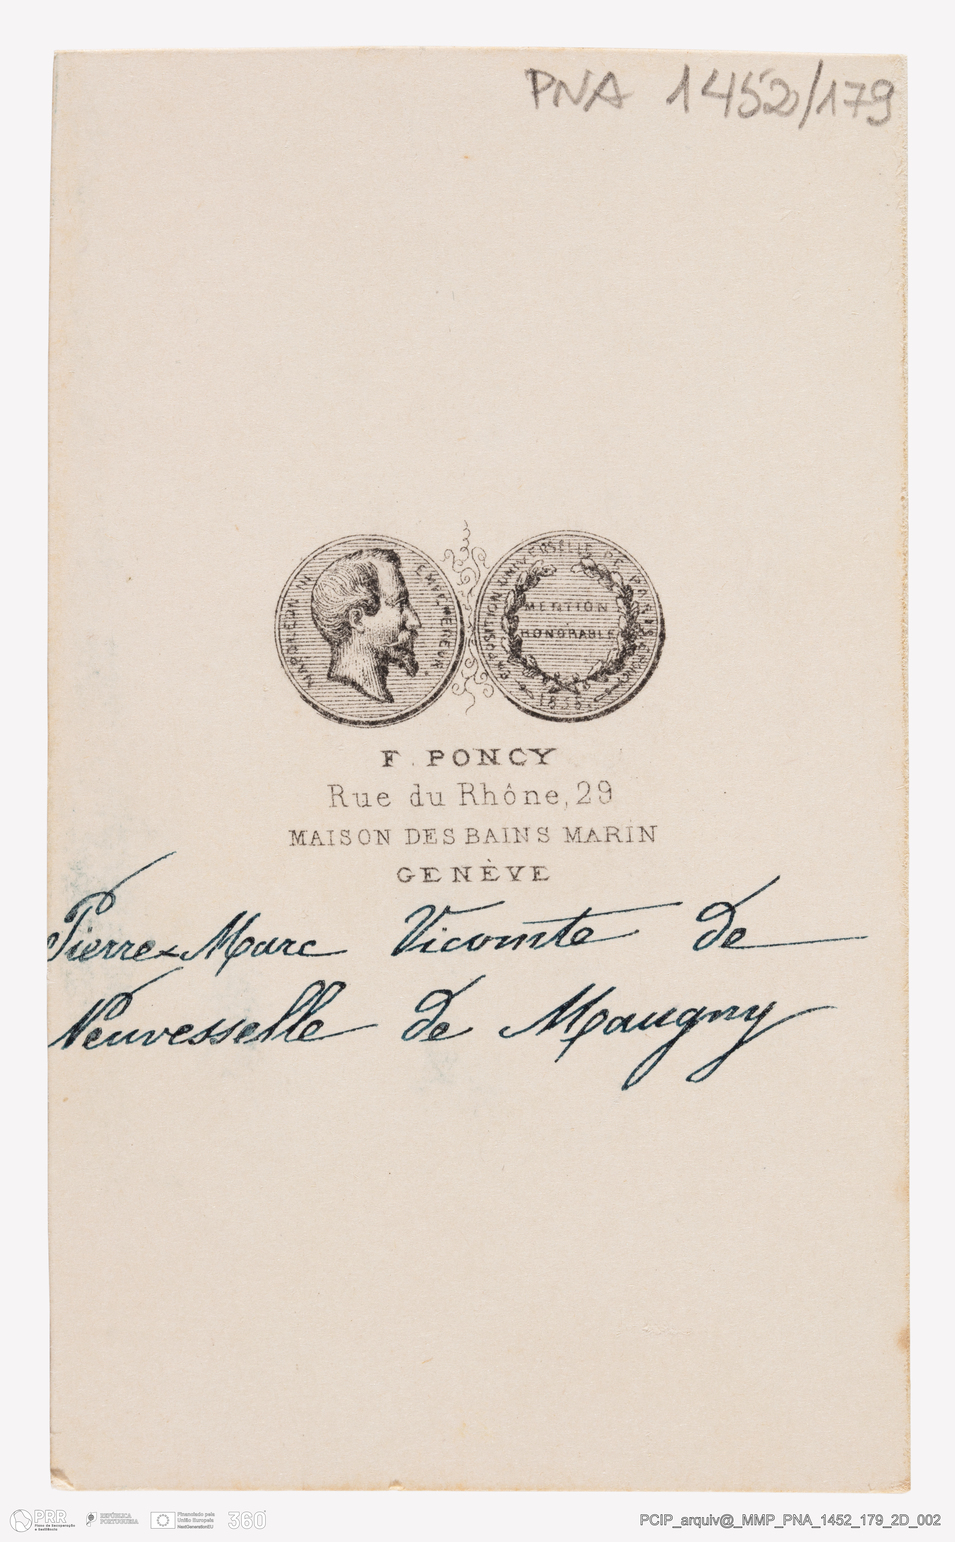 PNA 1452/179
NAPOLEON III EMPEREUR
EXPOSITION UNIVERSELLE DE PARIS
MENTION
HONORABLE
F. PONCY
Rue du Rhône, 29
MAISON DES BAINS MARIN
GENÈVE
Pierre-Marc Vicomte de
Neuvesselle de Maugny
PRR
Plano de Recuperação
e Resiliência
REPÚBLICA
PORTUGUESA
Financiado pela
União Europeia
NextGenerationEU
360
PCIP_arquiv@_MMP_PNA_1452_179_2D_002